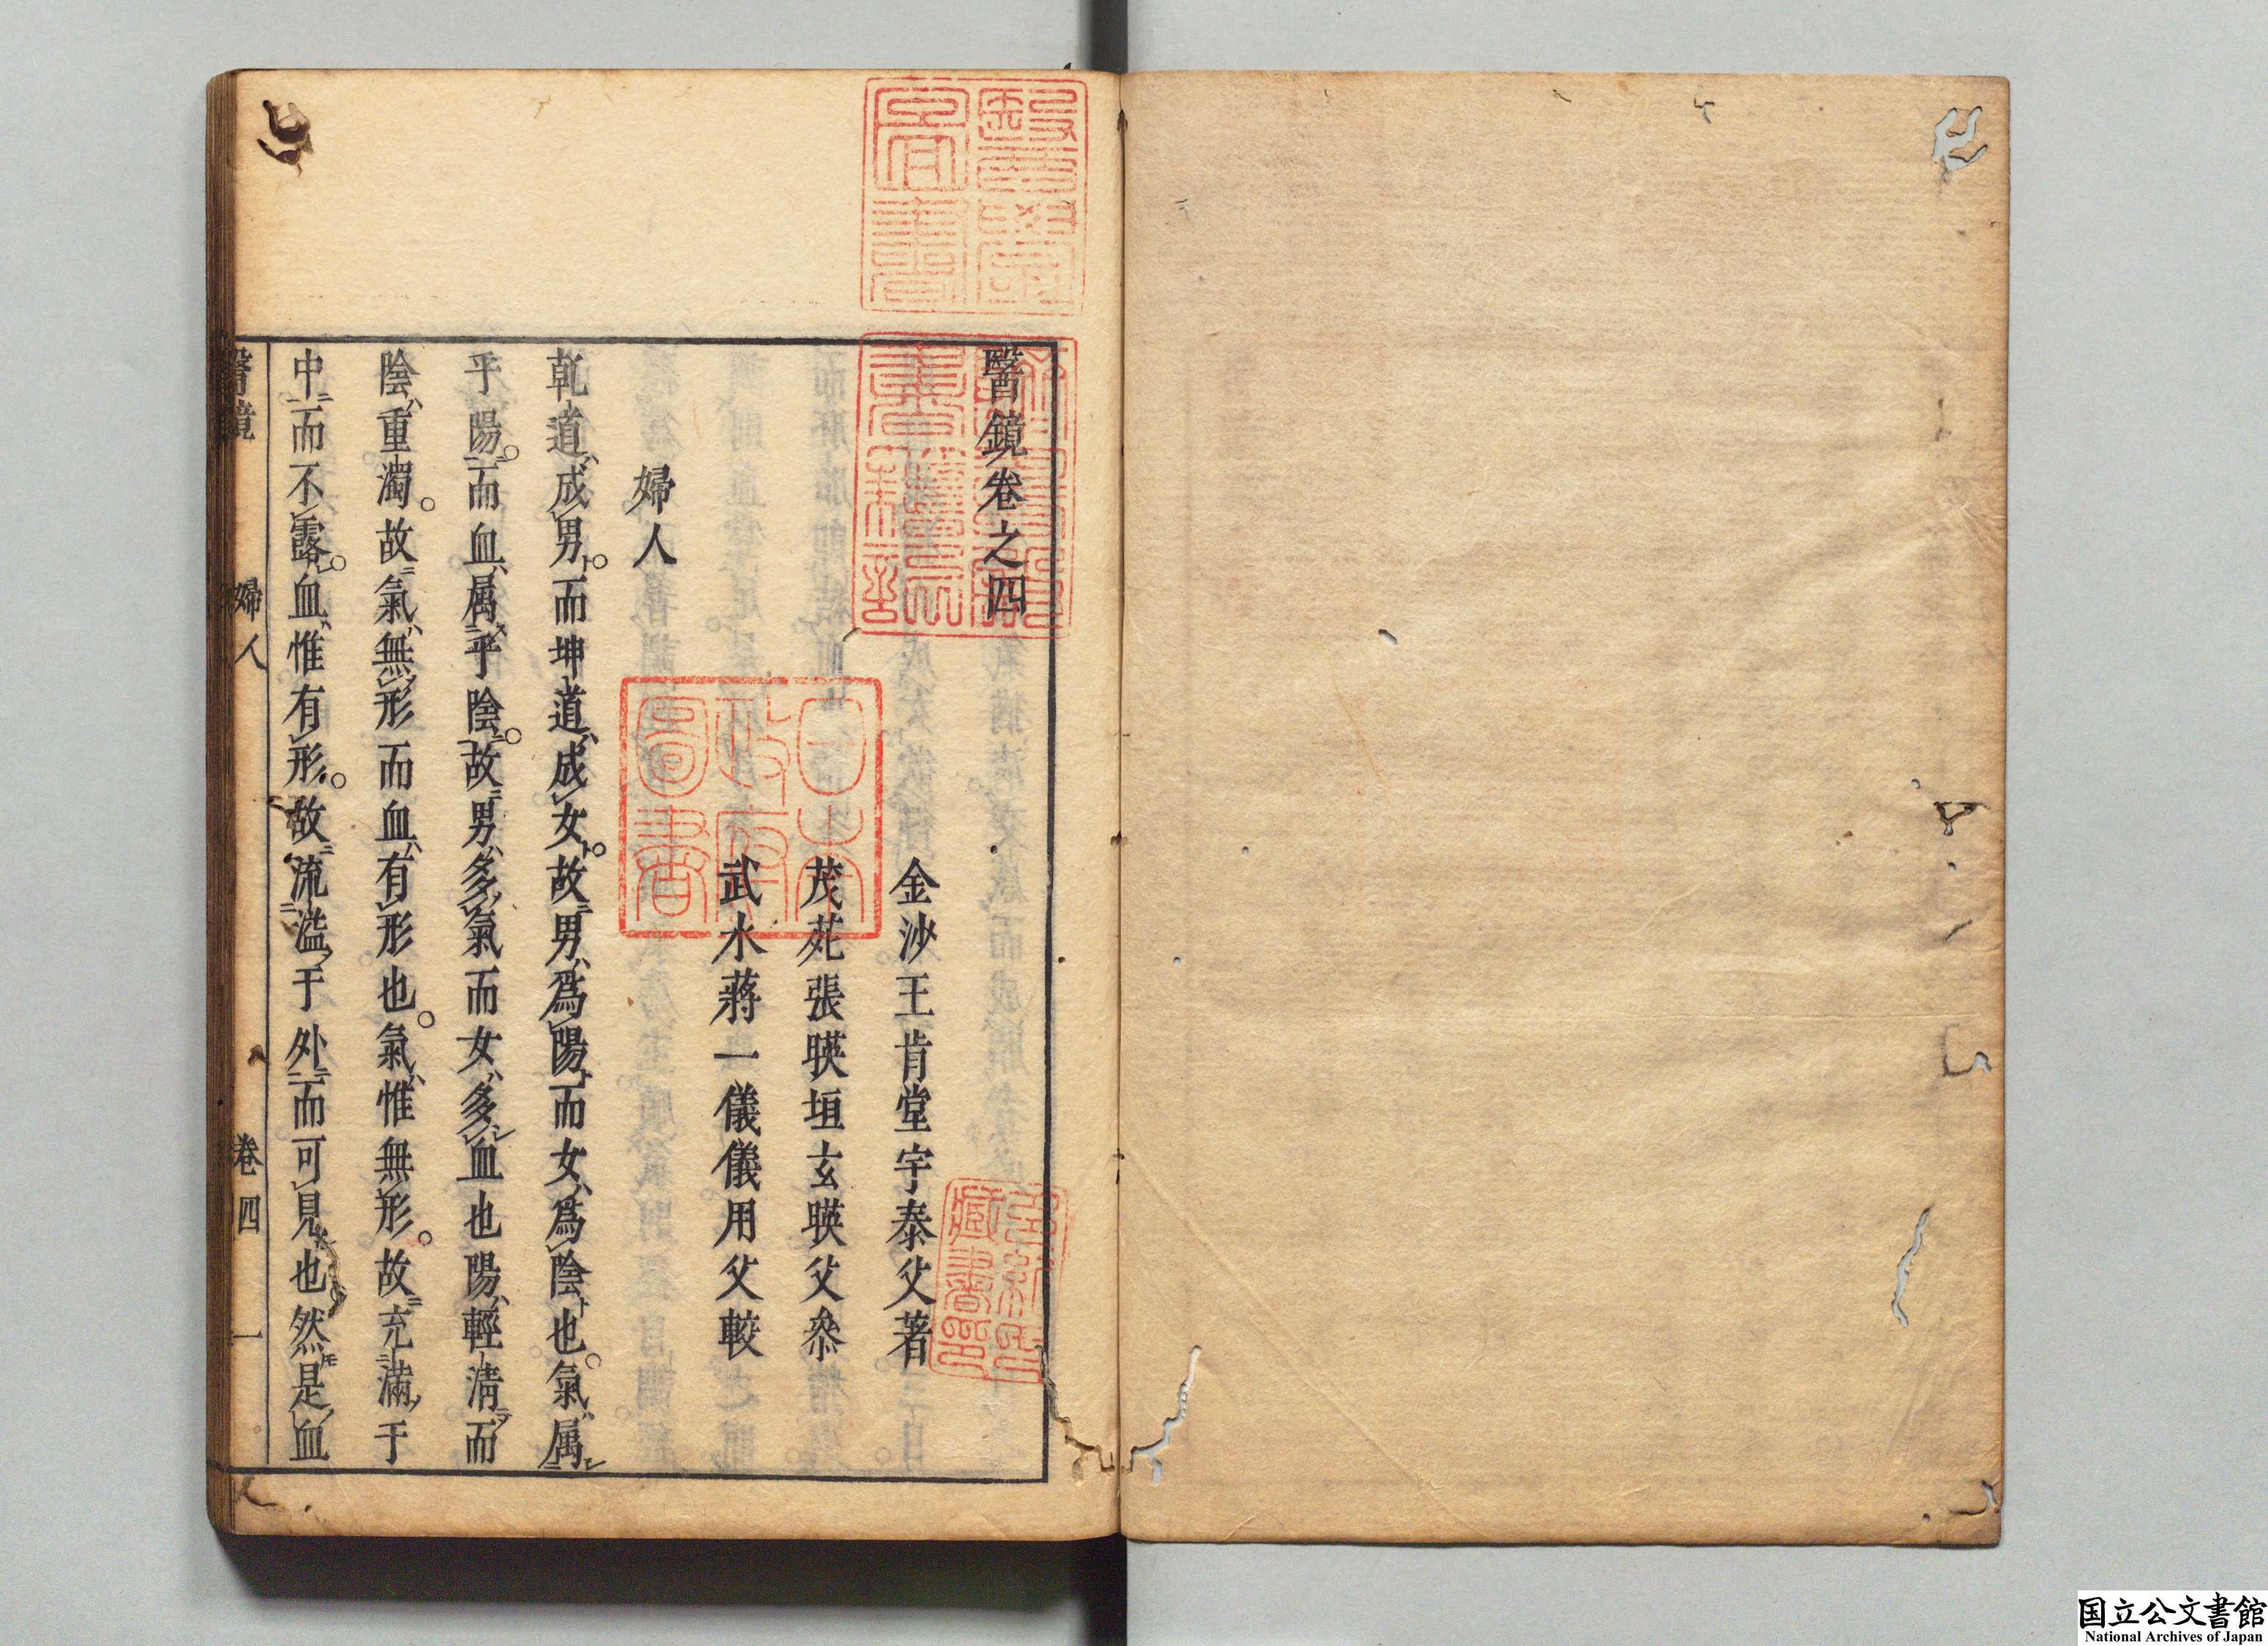 醫鏡卷之四
金沙王肯堂宇泰父著
茂苑張暎垣玄暎父叅
武水蔣一儀儀用父較
婦人
乾道成男。而坤道成女。故男爲陽而女爲陰也。氣属
乎陽。而血属乎陰。故男多氣而女多血也陽輕清而
陰重濁。故氣無形而血有形也。氣惟無形。故充滿于
中而不露。血惟有形。故流溢于外而可見也然是血
醫鏡 婦人 卷四 一
醫學圖書
日本政府圖書
藏書印
国立公文書館
National Archives of Japan